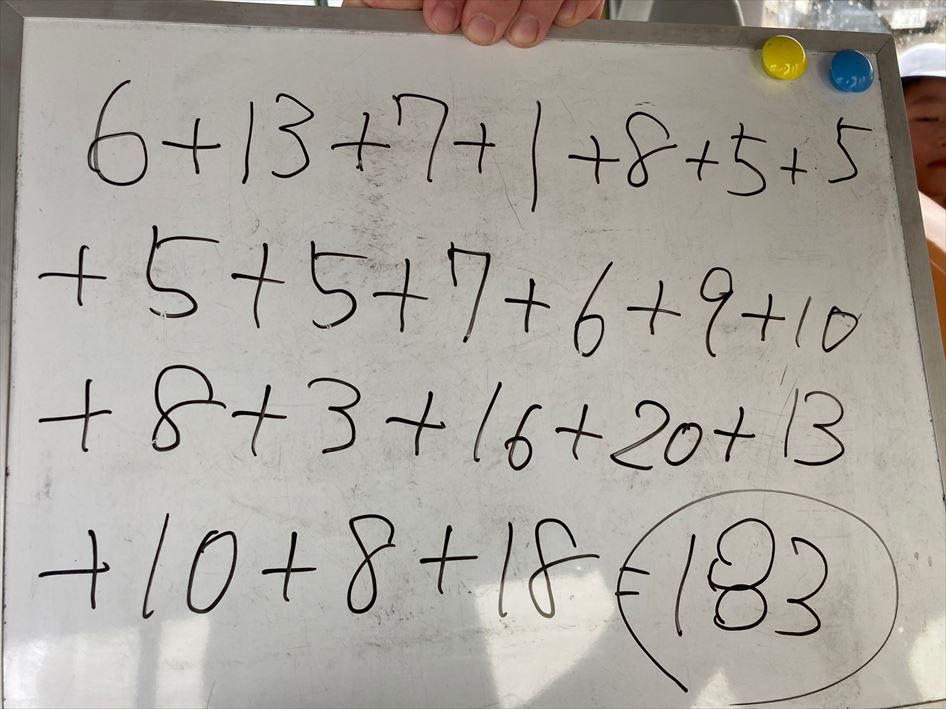 6+13+7+1+8+5+5
+5+5+7+6+9+10
+8+3+16+20+13
+10+8+18=183